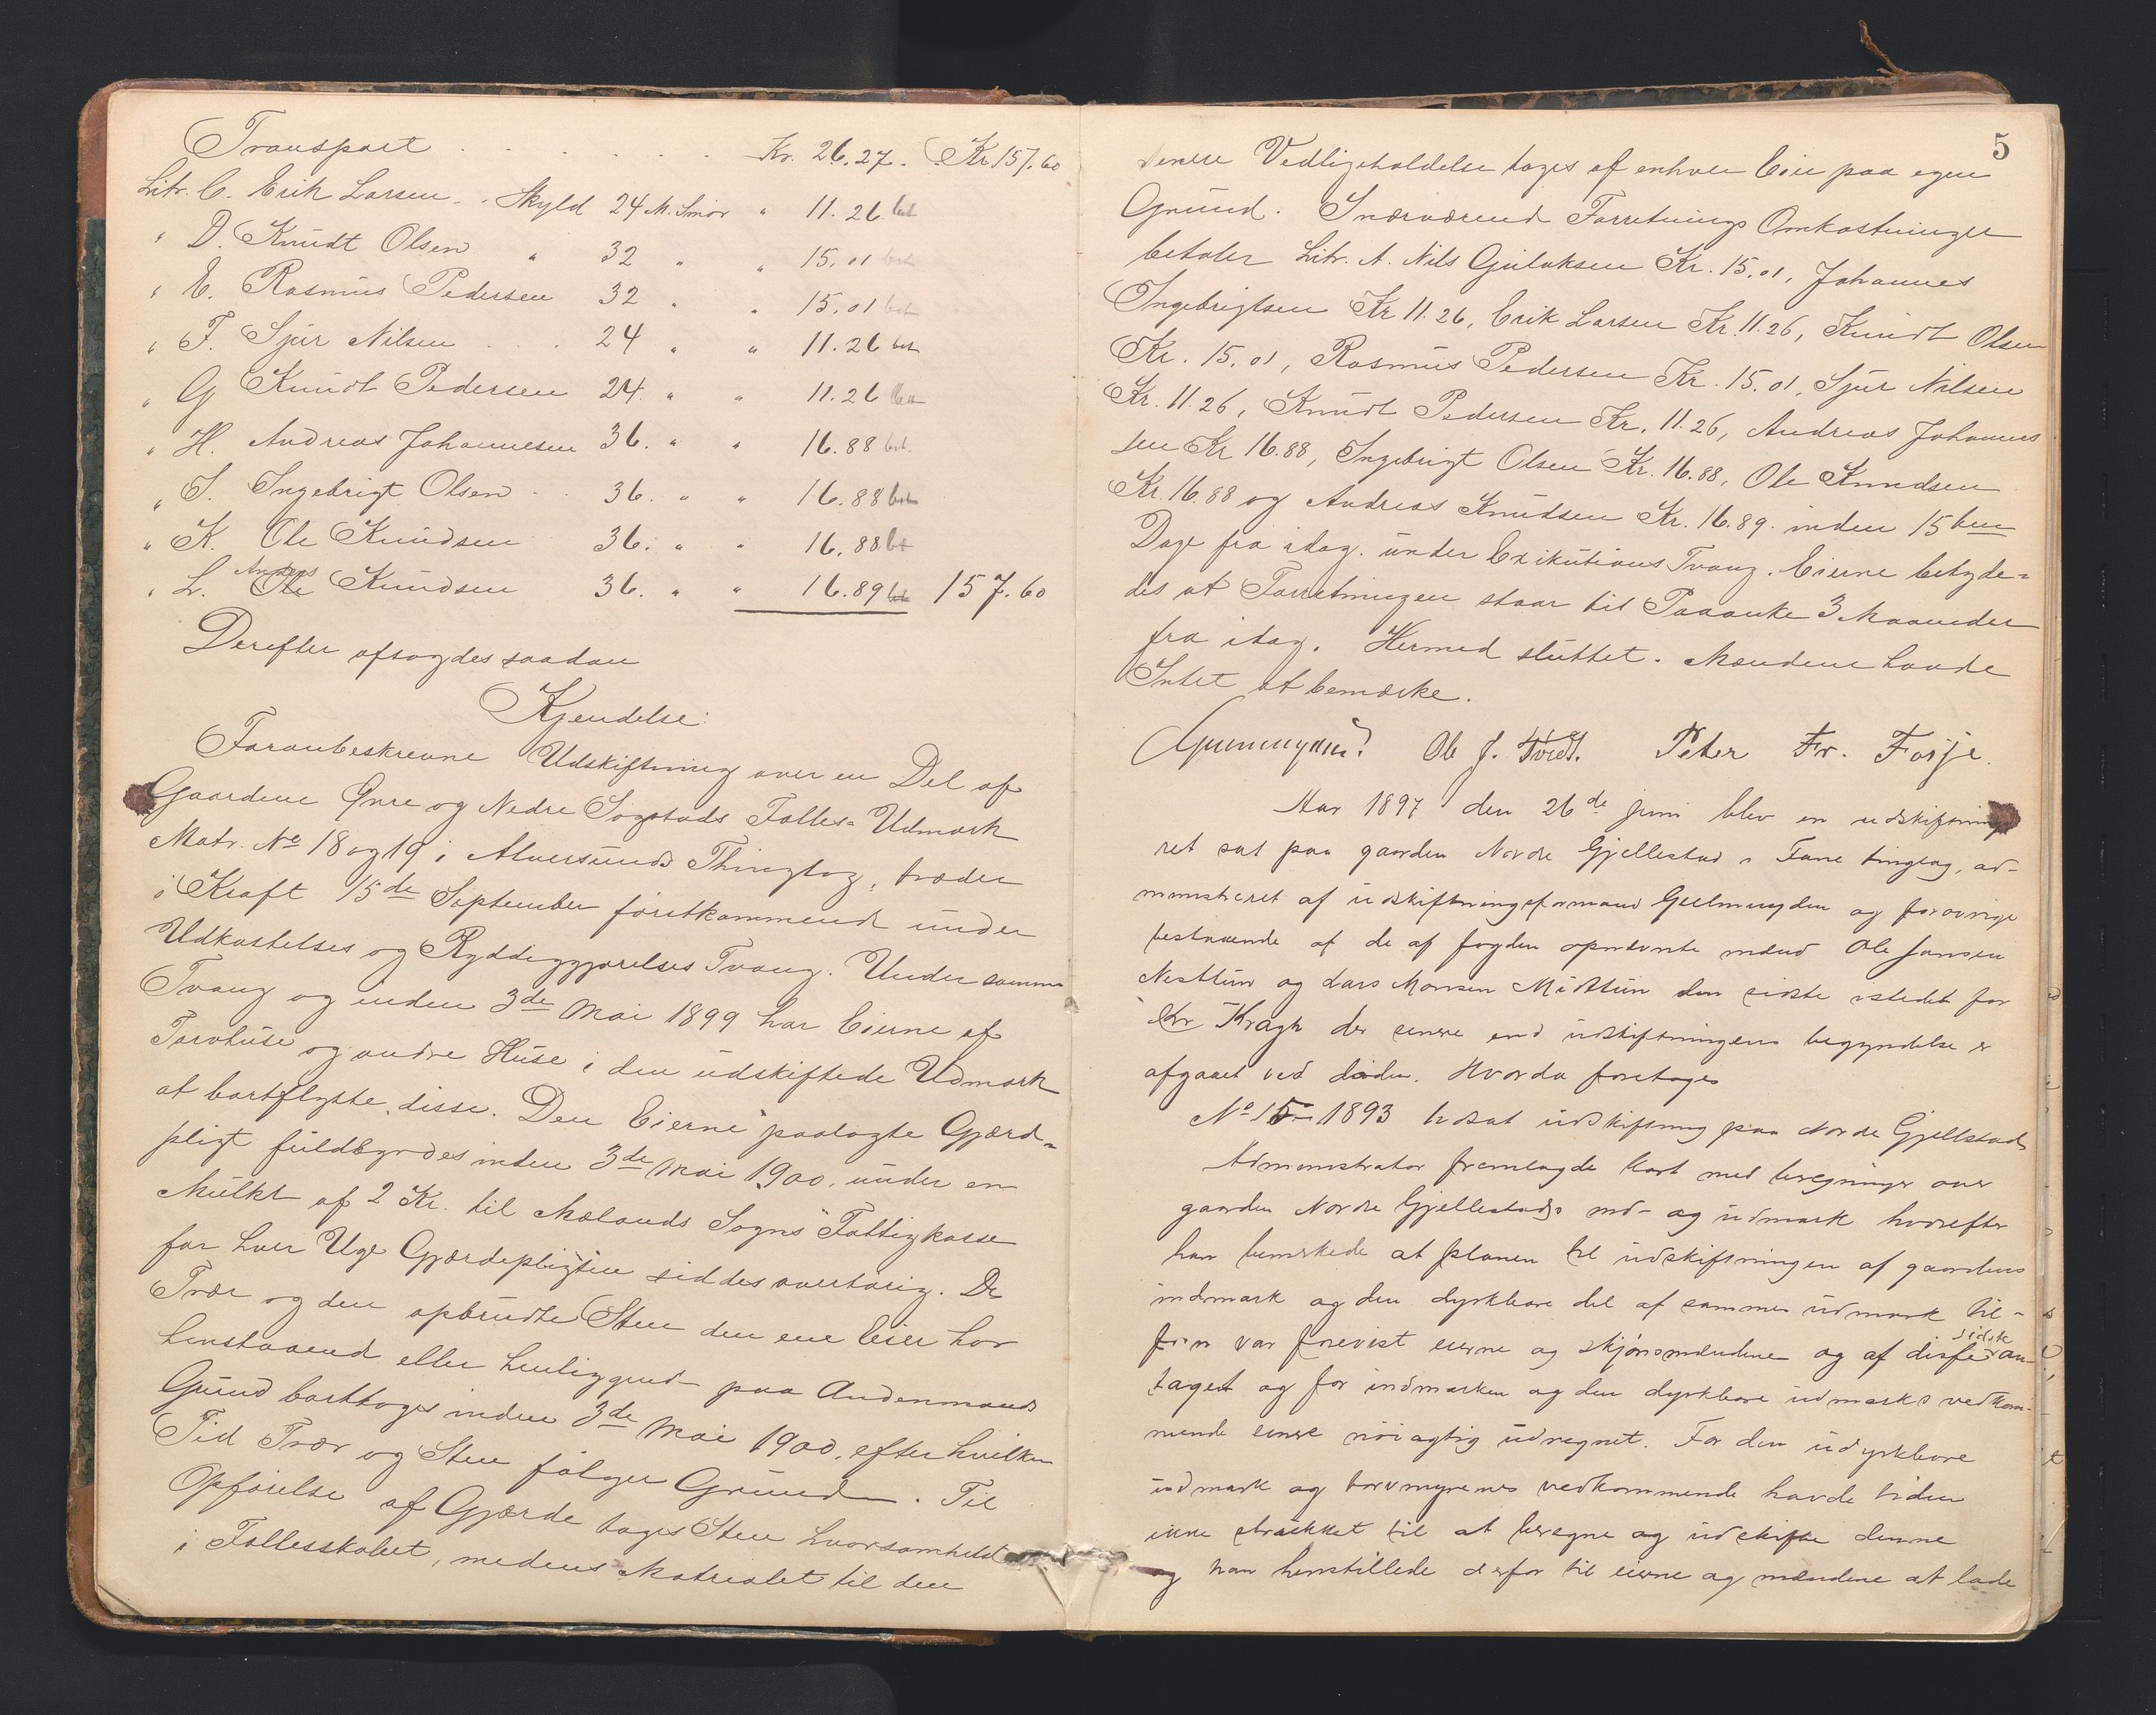 Transport . . . . . . . Kr. 26.27. Kr 157.60
Litr. C. Erik Larsen . . Skyld 24 M. Smør " 11.26 bet
" D. Knudt Olsen " 32 " " 15.01 bet
" E. Rasmus Pedersen 32 " " 15.01 bet
" F. Sjur Nilsen . . . 24 " " 11.26 bet
" G Knudt Pedersen 24. " " 11.26 bet
" H. Andreas Johannesen 36. " " 16.88 bet.
" I. Ingebrigt Olsen . . 36. " " 16.88 bet
" K. Ole Knudsen 36. " " 16.88 bet
" L. Anders Knudsen 36. " " 16.89 bet 157.60
Derefter afsagdes saadan
Kjendelse:
Foranbeskrevne Udskiftning over en Del af
Gaardene Øvre og Nedre Sogstads Fælles-Udmark
Matr. No 18 og 19 i Alversunds Thinglag, træder
i Kraft 15de September førstkommend under
Udkastelses og Ryddiggjørelses Tvang. Under samme
Tvang og inden 3de Mai 1899 har Eierne af
Torvhuse og andre Huse i den udskiftede Udmark
at bortflytte disse. Den Eierne paalagte Gjærd-
pligt fuldbyrdes inden 3de Mai 1900, under en
Mulkt af 2 Kr. til Mælands Sogns Fattigkasse
for hver Uge Gjærdepligten siddes overhørig. De
Trær og den opbrudte Sten den ene Eier har
henstaaend eller henliggend paa Andenmands
Grund borttages inden 3de Mai 1900, efter hvilken
Tid Trær og Sten følger Grunden. Til
Opførelse af Gjærde tages Sten hvorsomhelst
i Fællesskabet, medens Matrialet til den
5
senere Vedligeholdelse tages af enhver Eier paa egen
Grund. Nærværend Forretnings Omkostninger
betaler Litr. A. Nils Gulaksen Kr. 15.01, Johannes
Ingebrigtsen Kr 11.26, Erik Larsen Kr. 11.26, Knudt Olsen
Kr. 15.01, Rasmus Pedersen Kr. 15.01, Sjur Nilsen
Kr. 11.26, Knudt Pedersen Kr. 11.26, Andreas Johannes
sen Kr 16.88, Ingebrigt Olsen Kr. 16.88, Ole Knudsen
Kr. 16.88 og Andreas Knudsen Kr. 16.89. inden 15ten
Dage fra idag. under Exikutions Tvang. Eierne betyde-
des at Forretningen staar til Paaanke 3 Maaneder
fra idag. Hermed sluttet. Mændene havde
Intet at bemærke.
Ole J. Tvedt. Peter Fr. Fosje.
Aar 1897 den 26de juni blev en udskiftnings
ret sat paa gaarden Nordre Gjellestad i Fane tinglag, ad-
ministreret af udskiftningsformand Geelmuyden og forøvrigt
bestaaende af de af fogden opnævnte mænd Ole Jansen
Nesttun og Lars Monsen Midttun den sidste istedet for
Kr Kragh der senere end udskiftningens begyndelse er
afgaaet ved døden. Hvorda foretoges
No 15 1893 Udsat udskiftning paa Nordre Gjellestad
Administrator fremlagde kart med beregninger over
gaarden Nordre Gjellestads ind- og udmark hvorefter
han bemerkede at planen til udskiftningen af gaardens
indmark og den dyrkbare del af sammes udmark til-
forn var forevist eierne og skjønsmændene og af disse sidste an-
taget og for indmarken og den dyrkbare udmarks vedkom-
mende senere nøiagtig udregnet. For den udyrkbare
udmark og torvmyrenes vedkommende havde tiden
ikke strukket til at beregne og udskifte denne
og han henstillede derfor til eierne og mændene at lade